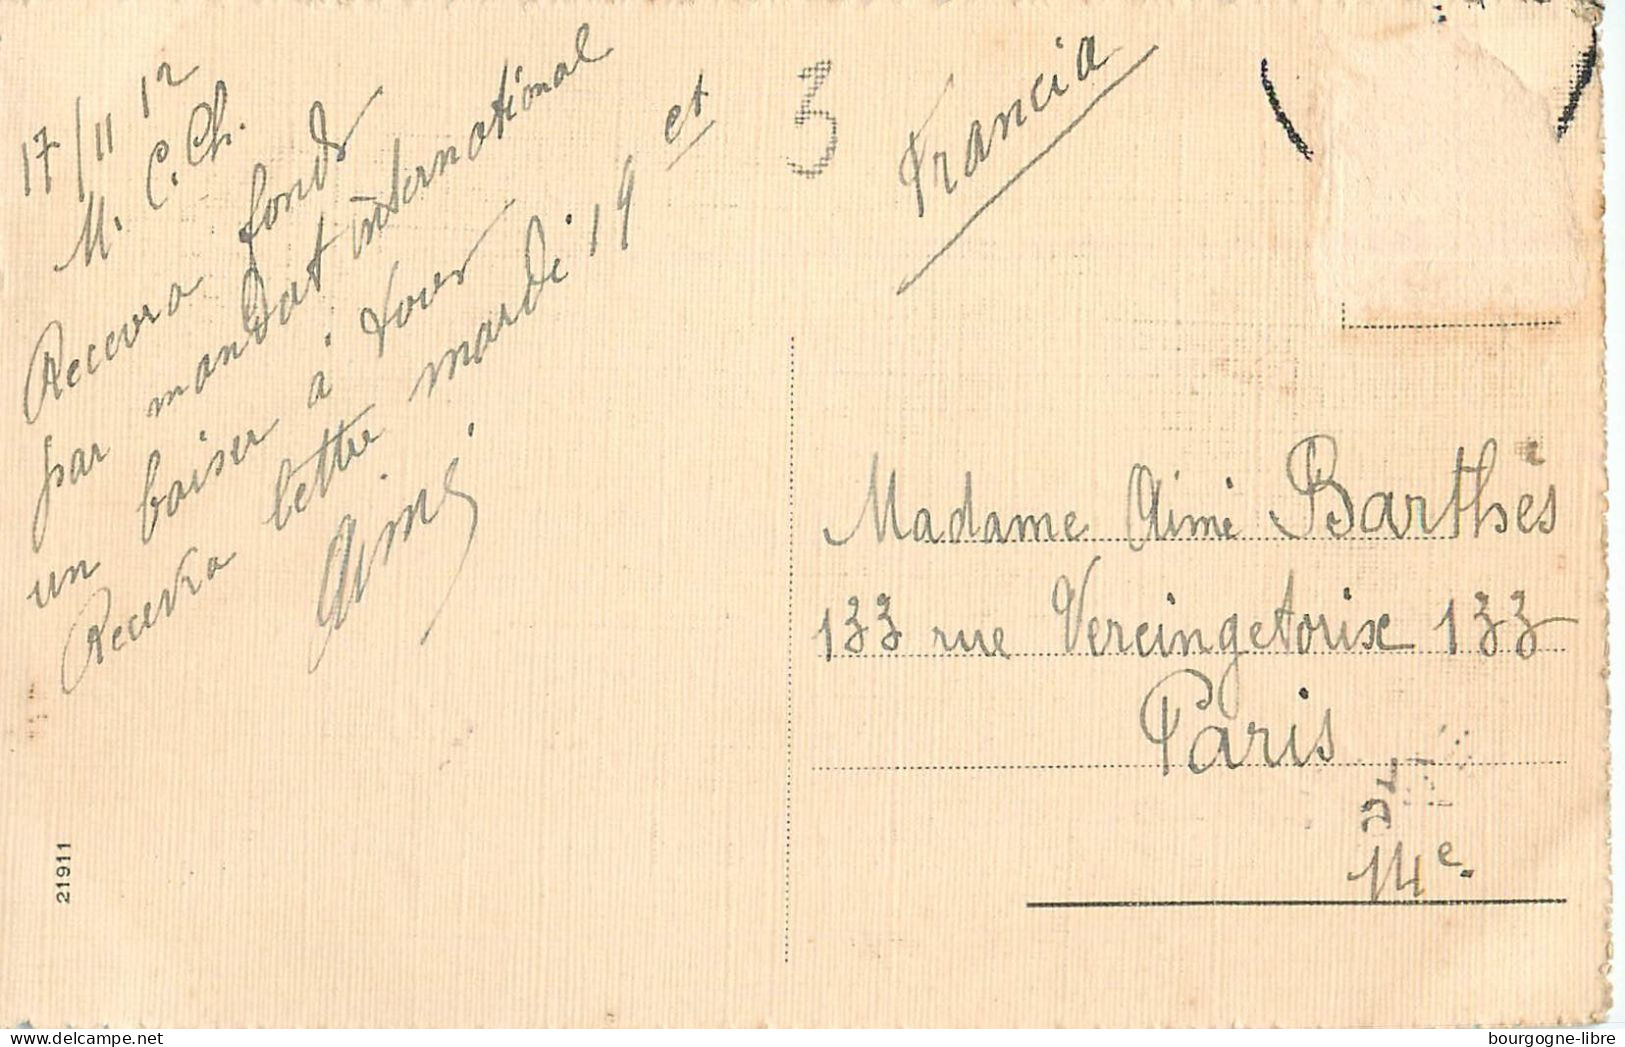 17/11 12
M. C. Ch.
Recevra fonds
par mandat international et
un baiser à tous
Recevra lettre mardi 19
Aimé
3
Francia
Madame Aimé Barthès
133 rue Vercingétorix 133
Paris
14e.
21911
bourgogne-libre